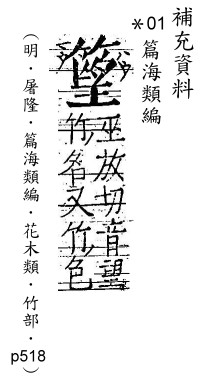 補充資料
*01 篇海類編
巫放切音望
竹名又竹色
（明．屠隆．篇海類編．花木類．竹部．p518）